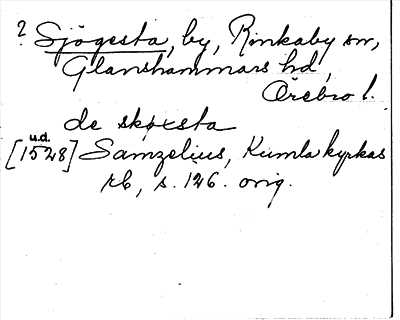 ? Sjögesta, by, Rinkaby sn,
Glanshammars hd,
Örebro l.
de skøxsta
u.d.
[1528] Samzelius, Kumla kyrkas
rb, s. 126. orig.